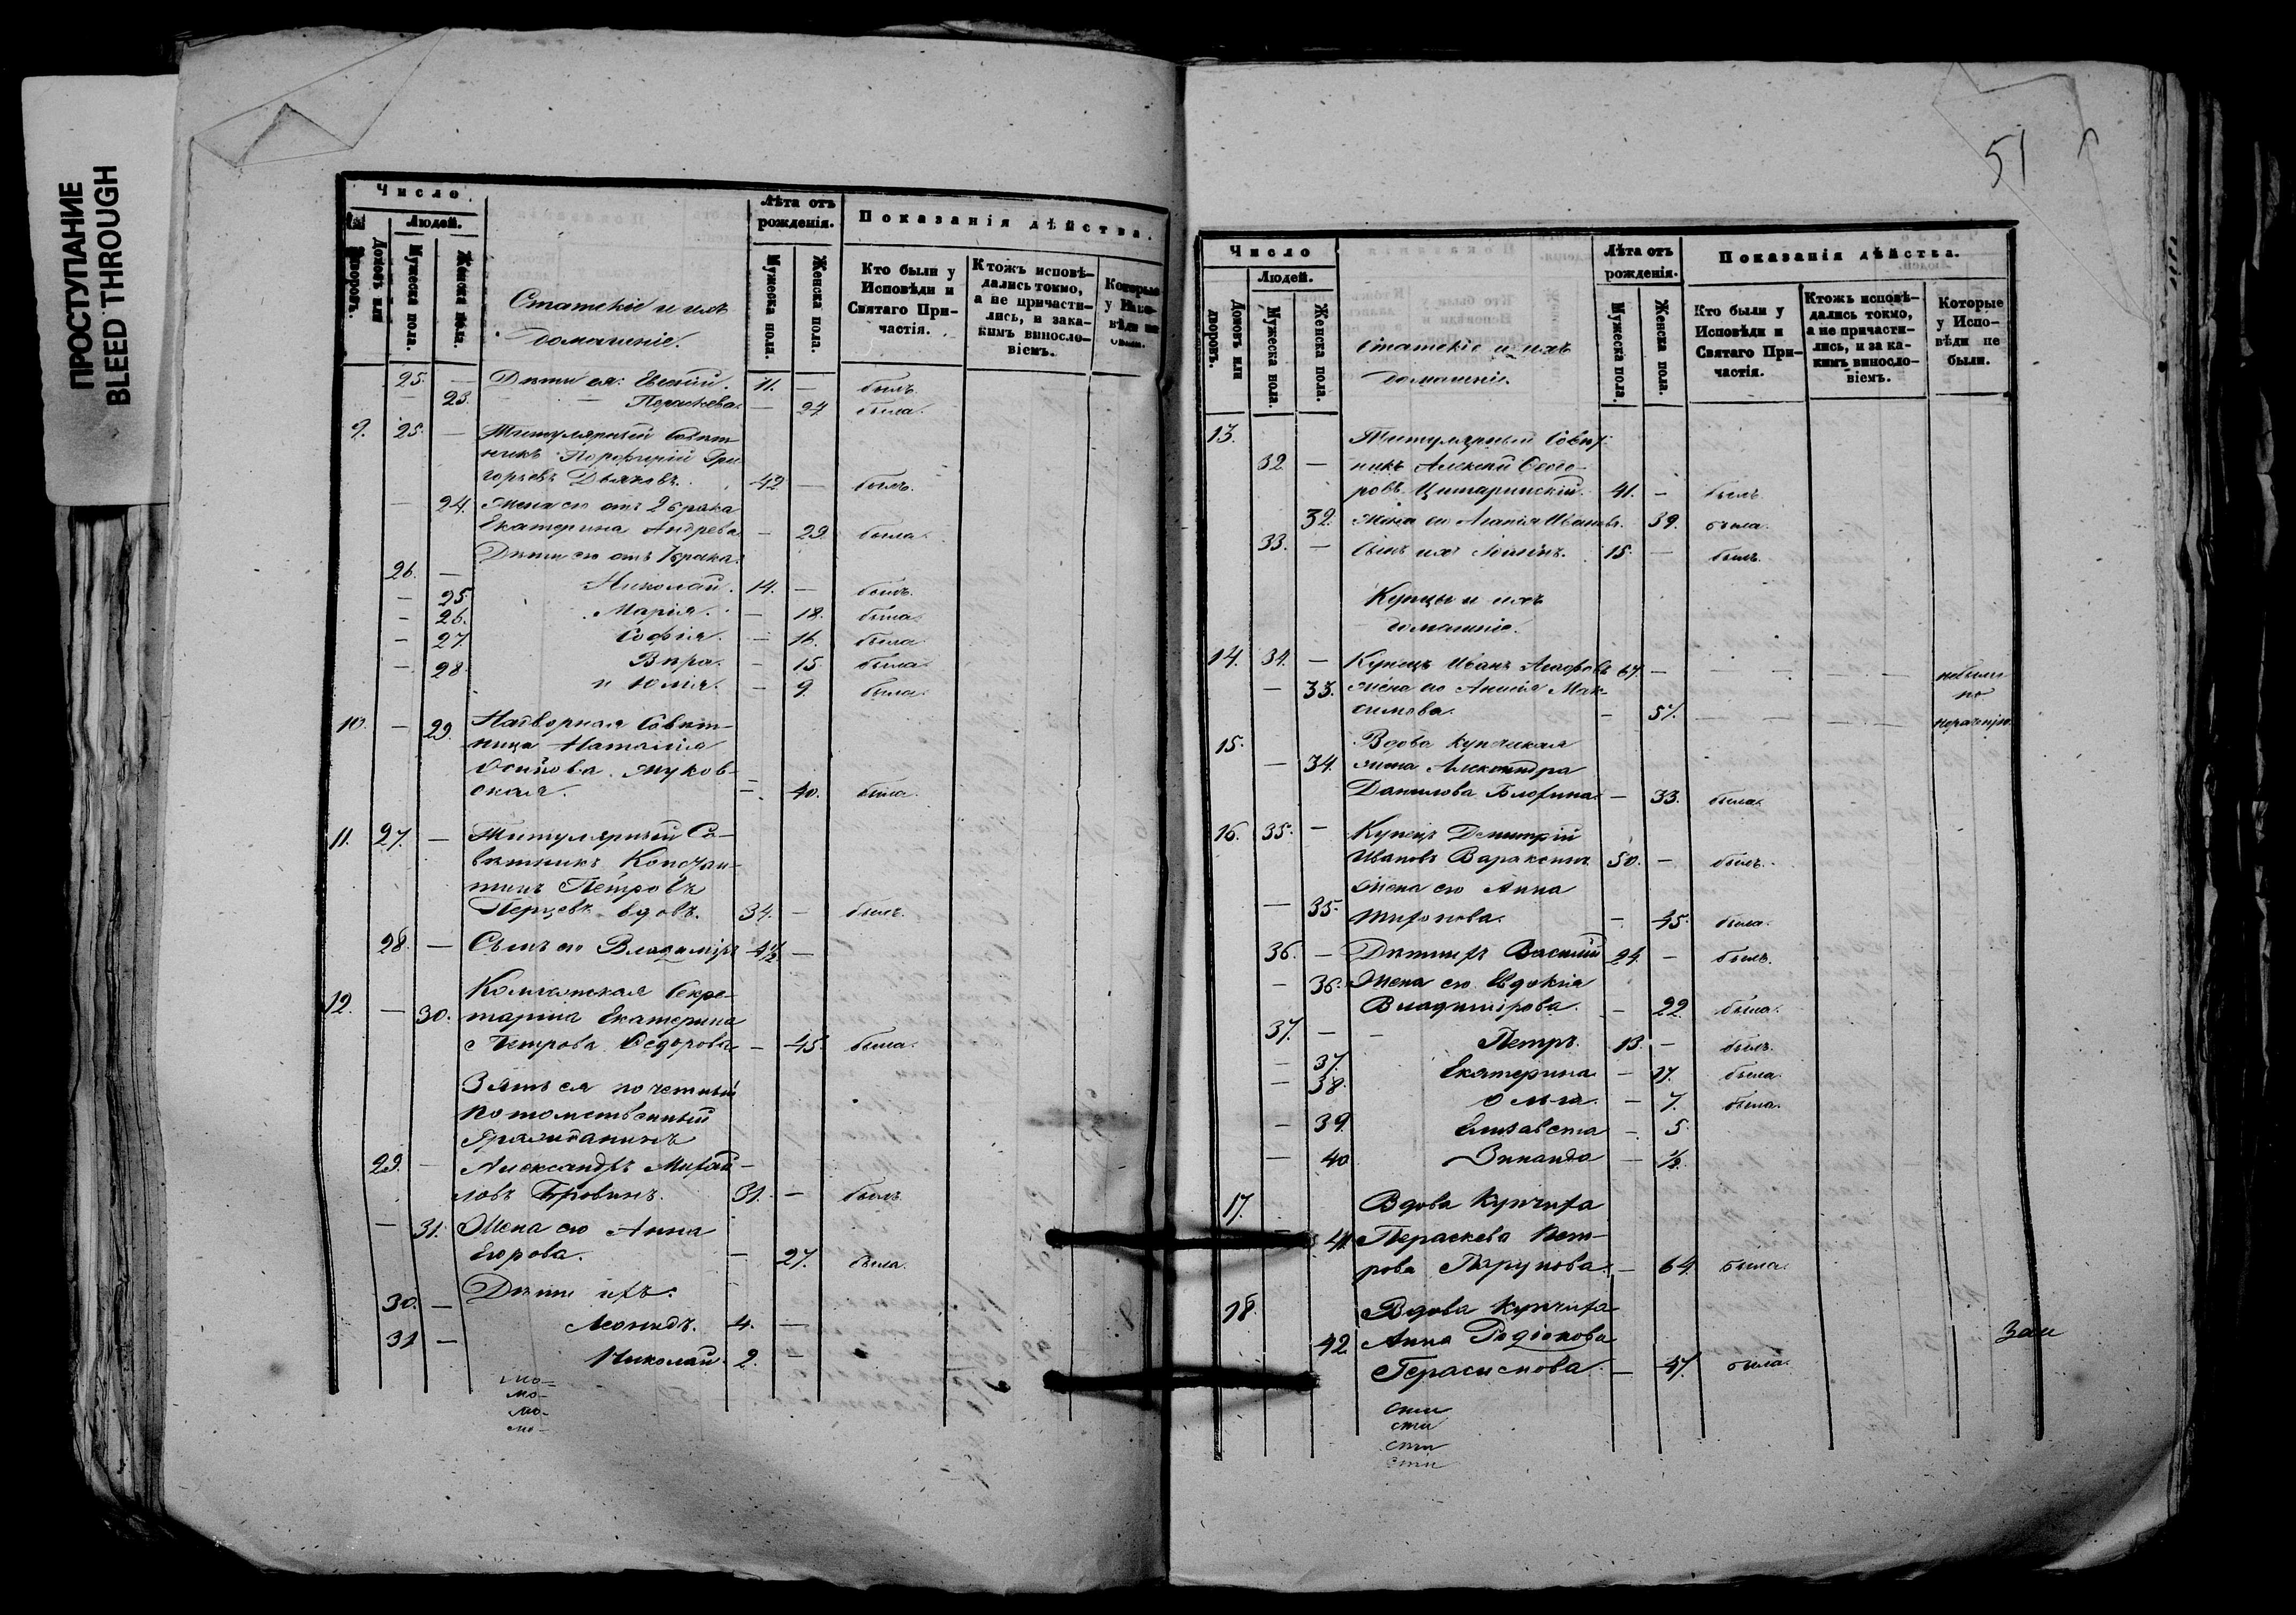 ПРОСТУПАНИЕ
BLEED THROUGH
Число
Людей.
Домовъ или дворовъ.
Мужеска пола.
Женска пола.
Статскіе и ихъ
домашніе.
Лѣта отъ рожденія.
Мужеска пола.
Женска пола.
Показанія дѣйства.
Кто были у Исповѣди и Святаго Причастія.
Ктожъ исповѣдались токмо, а не причастились, и за какимъ винословіемъ.
Которые у Исповѣди не были.
25. — Дѣти ея: 11. — былъ
— 23. — Параскева — 24 была.
9. 25. — Титулярный Совѣт-
никъ Порфирій Гри-
горьевъ Дьяковъ. 42 — былъ.
— 24. Жена его отъ 2 брака
Екатерина Андреева — 29. была.
Дѣти его отъ 1 брака
26. — Николай. 14. — былъ.
— 25. Марія. — 18. была
— 26. Софія. — 16. была
— 27. Вѣра. — 15. была
— 28. и Юлія. — 9. была.
10. — 29. Надворная Совѣт-
ница Наталія
Осипова Жуков-
ская. — 40. была.
11. 27. — Титулярный Со-
вѣтникъ Констан-
тинъ Петровъ
вдовъ. 34. — былъ.
28. — Сынъ его Владиміръ 4½ —
12. — 30. Коллежская Секре-
тарша Екатерина
Петрова Ѳедорова — 45. была.
Зять ея почетный
потомственный
гражданинъ
29. — Александръ Михай-
ловъ 31. — былъ
— 31. Жена его Анна
Егорова. — 27. была.
Дѣти ихъ:
30. — Леонидъ. 4. —
31 — Николай. 2. —
мо-
мо-
мо-
мо-
51
Число
Людей.
Домовъ или дворовъ.
Мужеска пола.
Женска пола.
Статскіе и ихъ
домашніе.
Лѣта отъ рожденія.
Мужеска пола.
Женска пола.
Показанія дѣйства.
Кто были у Исповѣди и Святаго Причастія.
Ктожъ исповѣдались токмо, а не причастились, и за какимъ винословіемъ.
Которые у Исповѣди не были.
13. Титулярный Совѣт-
32 — никъ Алексѣй Ѳедо-
ровъ 41. — былъ
32. Жена его Иванов. 39. была.
33. — Сынъ ихъ 15. — былъ.
Купцы и ихъ
домашніе.
14. 34. — Купецъ Иванъ 67. — небыли
— 33. Жена его Мак- по
симова. — 57. нераченію
15. Вдова купеческая
— 34. жена Александра
Данилова — 33. была.
16. 35. — Купецъ Димитрій
Ивановъ Вараксинъ 50. — былъ.
Жена его Анна
— 35. — 45. была.
36. — Дѣти ихъ Василій 24. — былъ.
— 36. Жена его Евдокія
Владимірова. — 22. была.
37. — Петръ. 13. — былъ.
— 37. Екатерина — 17. была.
— 38. Ольга. — 7. была.
— 39. Елизавета — 5.
— 40 Зинаида — ½.
17. Вдова Купчиха
41 Параскева Пет-
рова — 64. была.
18. Вдова Купчиха
42. Анна Родіонова
Герасимова. — 47. была.
Зап
сти
сти
сти
сти